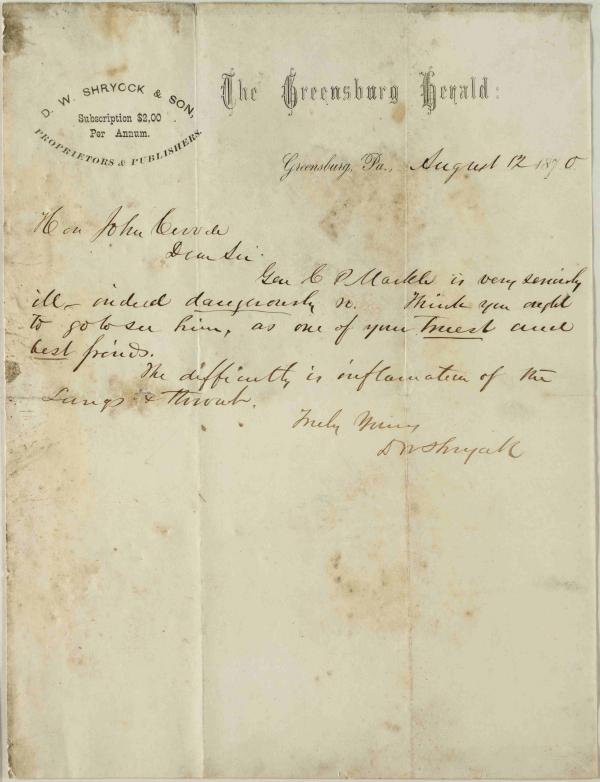 D. W. SHRYOCK & SON,
Subscription $2,00
Per Annum.
PROPRIETORS & PUBLISHERS.
The Greensburg Herald:
Greensburg, Pa., August 12 1870
Hon John Covode
Dear Sir
Gen C P Markle is very seriously
ill - indeed dangerously so. Think you ought
to go to see him, as one of your truest and
best frinds.
The difficulty is inflamation of the
Lungs & throat.
Truly Yours
D W Shryock